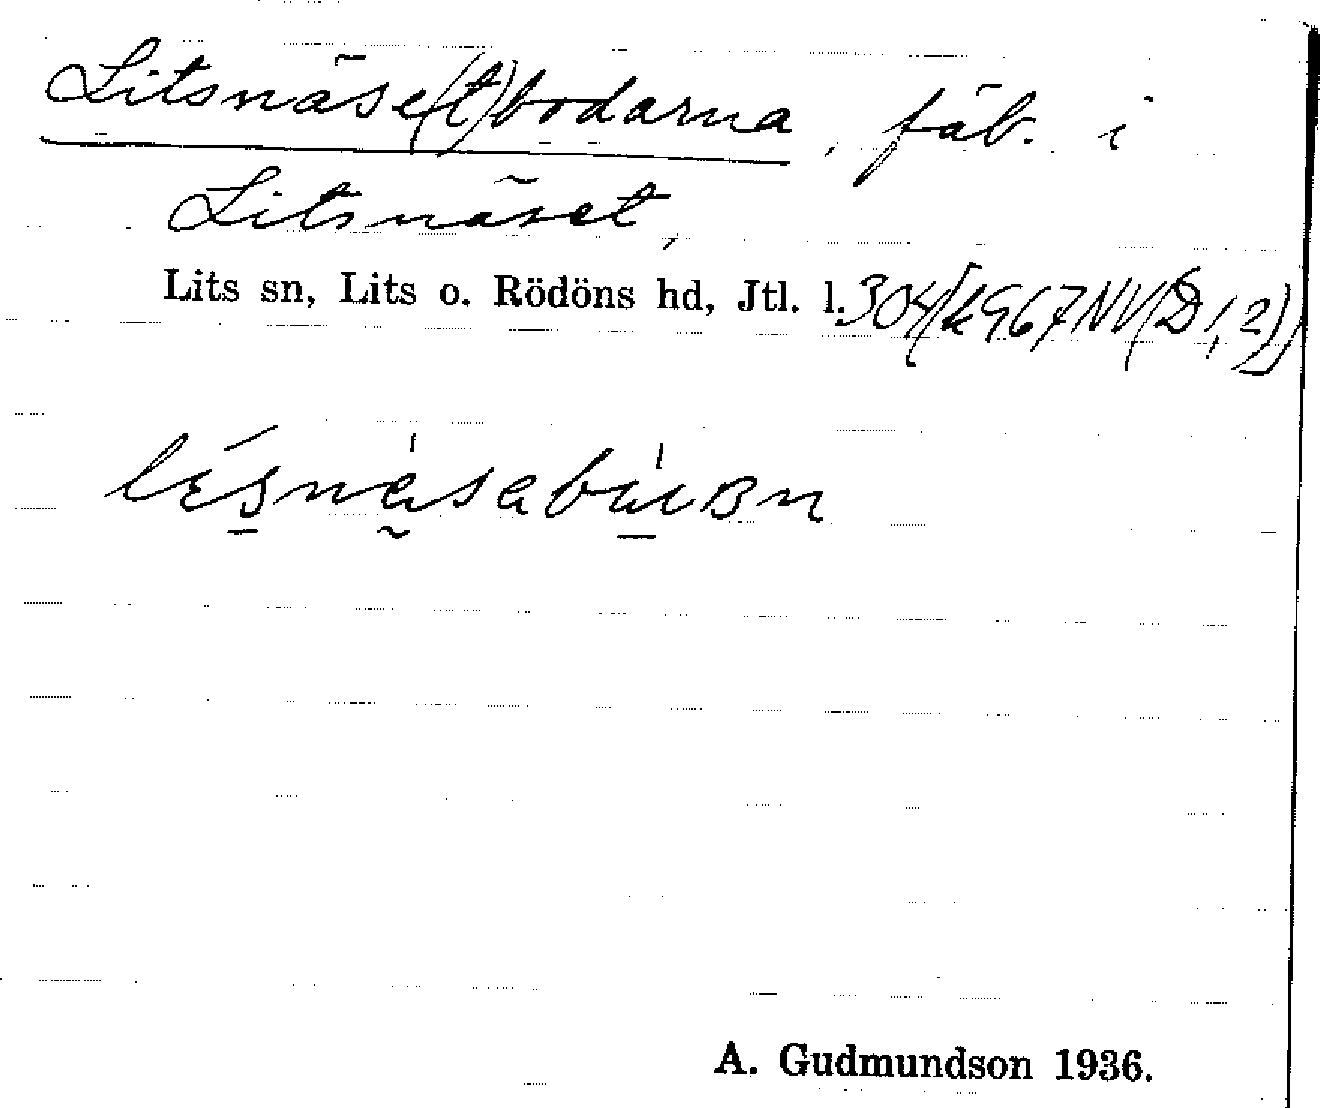 Litsnäse(t)bodarna, fäb. i
Litsnäset,
Lits sn, Lits o. Rödöns hd, Jtl. l. 304 (k967NV(D,2))
A. Gudmundson 1936.